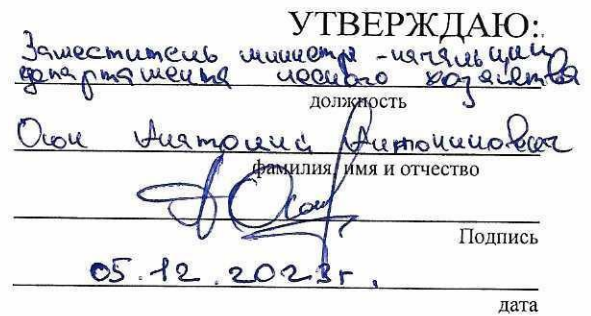 УТВЕРЖДАЮ:
Заместитель министра - начальник
департамента лесного хозяйства
должность
Осон Анатолий Антонинович
фамилия, имя и отчество
Подпись
05.12.2023г.
дата